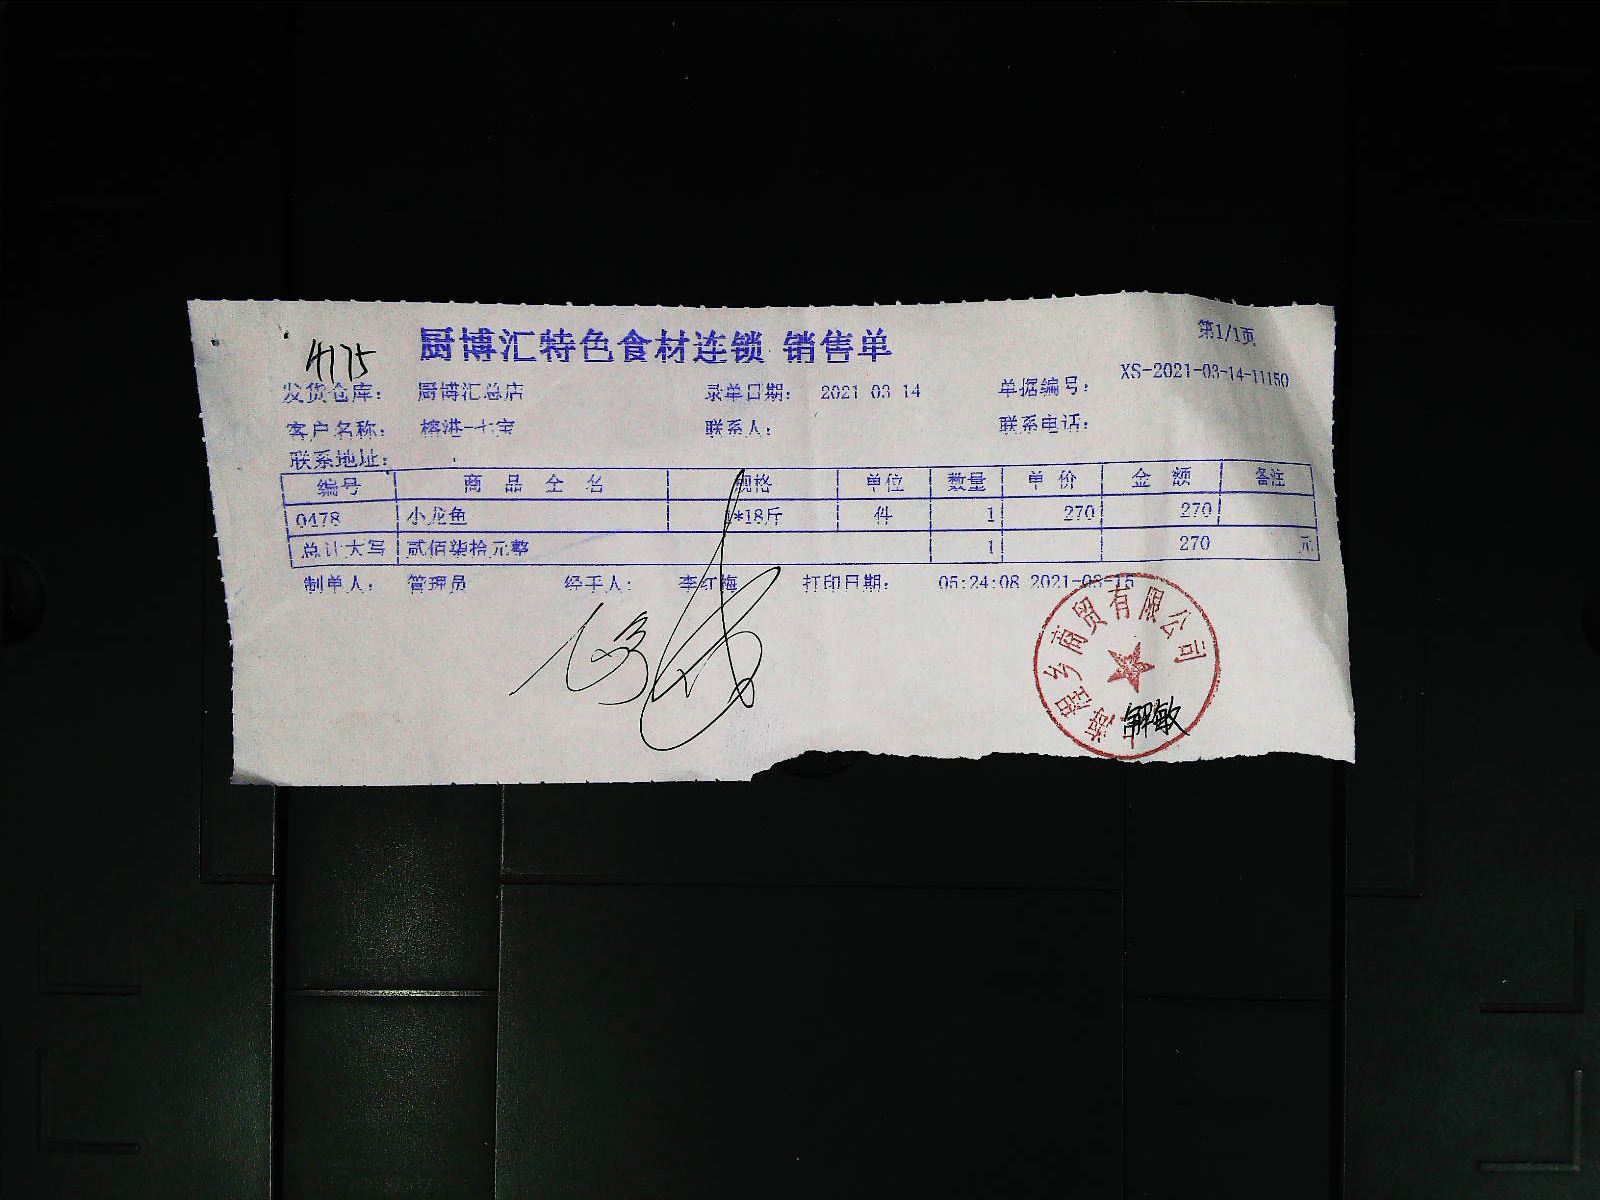 厨博汇特色食材连锁 销售单
第1/1页
4175
发货仓库： 厨博汇总店 录单日期： 2021 03 14 单据编号： XS-2021-03-14-11150
客户名称： 榕港-七宝 联系人： 联系电话：
联系地址：
编号 商品全名 规格 单位 数量 单价 金额 备注
0478 小龙鱼 1*18斤 件 1 270 270
总计大写 贰佰柒拾元整 1 270 元
制单人： 管理员 经手人： 李红梅 打印日期： 05:24:08 2021-03-15
商贸有限公司
解敏